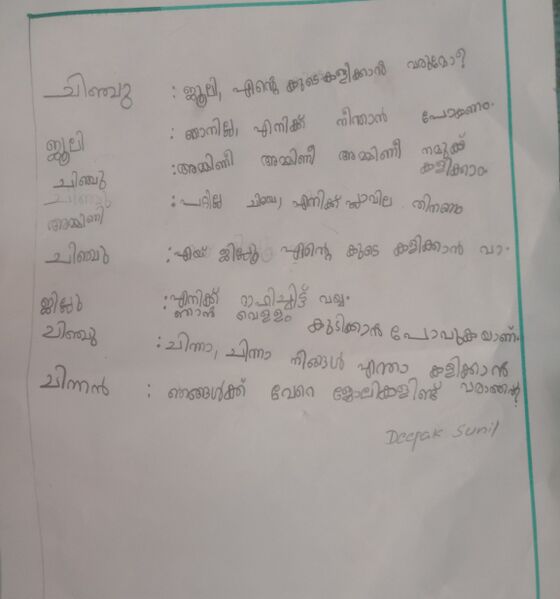 ചിഞ്ചു : ജൂലി, എന്റെ കൂടെ കളിക്കാൻ വരുമോ?
ജൂലി : ഞാനില്ല, എനിക്ക് നീന്താൻ പോകണം.
ചിഞ്ചു : അമ്മിണീ അമ്മിണീ അമ്മിണീ നമുക്ക്
കളിക്കാം
അമ്മിണി : പറ്റില്ല ചിഞ്ചു, എനിക്ക് പ്ലാവില തിന്നണം
ചിഞ്ചു : എയ് ജിമ്മു എന്റെ കൂടെ കളിക്കാൻ വാ.
ജിമ്മു : എനിക്ക് ദാഹിച്ചിട്ട് വയ്യ.
ഞാൻ വെള്ളം കുടിക്കാൻ പോവുകയാണ്.
ചിഞ്ചു : ചിന്നാ, ചിന്നാ നിങ്ങൾ എന്താ കളിക്കാൻ
ചിന്നൻ : ഞങ്ങൾക്ക് വേറെ ജോലികളുണ്ട് വരാത്തത്?
Deepak Sunil